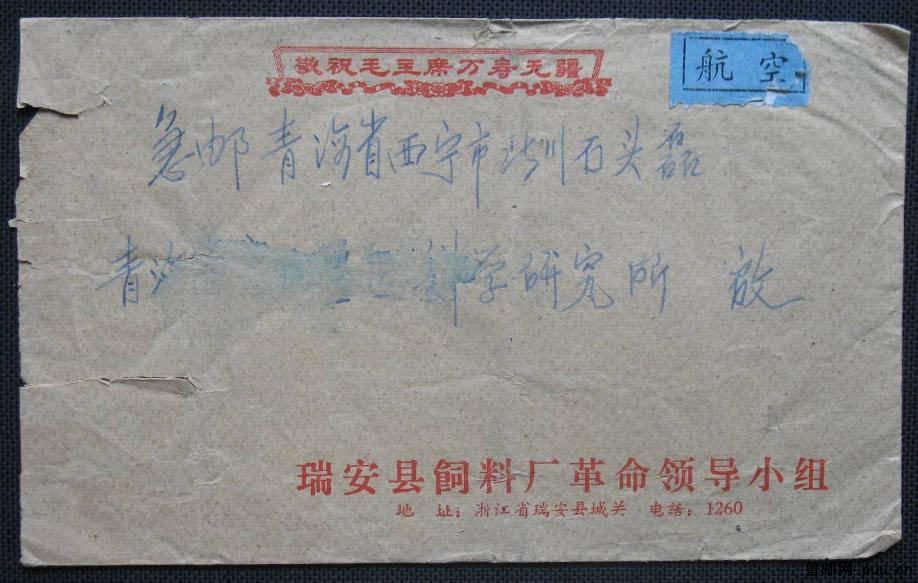 敬祝毛主席万寿无疆
航空
急邮青海省西宁市川石头磊
青海 科学研究所 啟
瑞安县飼料厂革命领导小组
地址：浙江省瑞安县城关 电話：1260